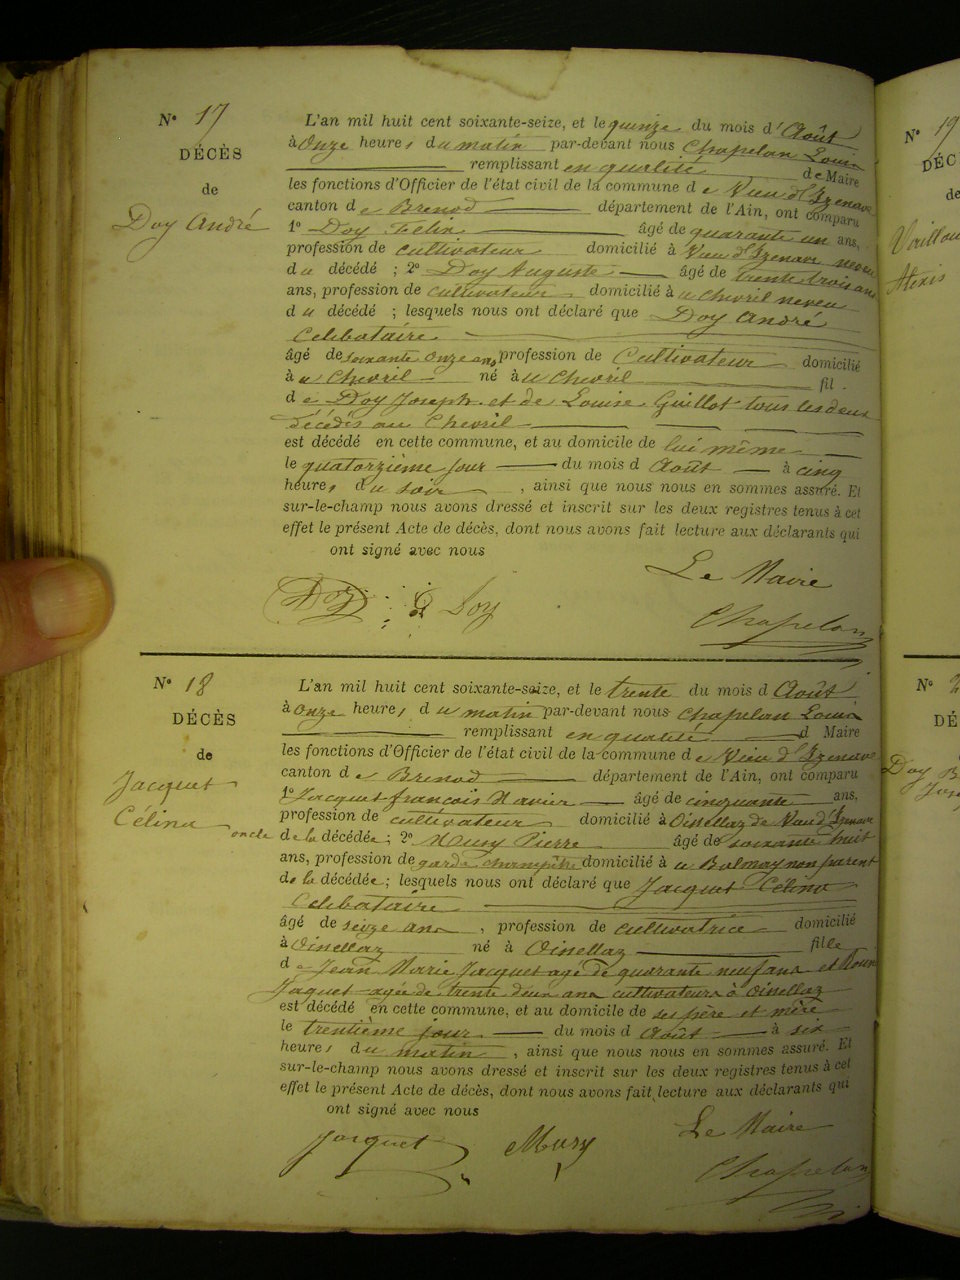 N° 17
DÉCÈS
de
Doy André
L'an mil huit cent soixante-seize, et le quinze du mois d'Août
à Onze heures du matin par-devant nous Chapelan Louis
remplissant en qualité de Maire
les fonctions d'Officier de l'état civil de la commune de Vieu d'Izenave
canton de Brenod département de l'Ain, ont comparu
1° Doy Felix âgé de quarante un ans,
profession de cultivateur domicilié à Vieu d'Izenave neveu
du décédé ; 2° Doy Auguste âgé de trente trois ans
ans, profession de cultivateur domicilié à u Chevril neveu
du décédé ; lesquels nous ont déclaré que Doy André
Celibataire
âgé de soixante onze ans profession de Cultivateur domicilié
à u Chevril né à u Chevril fil
de Doy Joseph et de Louise Guillot tous les deux
décédés au Chevril
est décédé en cette commune, et au domicile de lui même
le quatorzième jour du mois d Août à cinq
heures du soir , ainsi que nous nous en sommes assuré. Et
sur-le-champ nous avons dressé et inscrit sur les deux registres tenus à cet
effet le présent Acte de décès, dont nous avons fait lecture aux déclarants qui
ont signé avec nous
Le Maire
Doy Doy Chapelan
N° 18
DÉCÈS
de
Jacquet
Célina
L'an mil huit cent soixante-seize, et le trente du mois d Août
à onze heures du matin par-devant nous Chapelan Louis
remplissant en qualité d Maire
les fonctions d'Officier de l'état civil de la commune de Vieu d'Izenave
canton de Brenod département de l'Ain, ont comparu
1° Jacquet françois Xavier âgé de cinquante ans,
profession de cultivateur domicilié à Oisellaz de Vieu d'Izenave
oncle de la décédée ; 2° Mury Pierre âgé de soixante huit
ans, profession de garde champêtre domicilié à u Balmay non parent
de la décédée ; lesquels nous ont déclaré que Jacquet Célina
Celibataire
âgé de seize ans , profession de cultivatrice domicilié
à Oisellaz né à Oisellaz fille
de Jean Marie Jacquet agé de quarante neuf ans et
Jaquet agée de trente deux ans cultivateurs à Oisellaz
est décédé en cette commune, et au domicile de ses père et mère
le trentième jour du mois d Août à six
heures du matin , ainsi que nous nous en sommes assuré. Et
sur-le-champ nous avons dressé et inscrit sur les deux registres tenus à cet
effet le présent Acte de décès, dont nous avons fait lecture aux déclarants qui
ont signé avec nous
Le Maire
Jacquet Mury Chapelan
N° 19
DÉC
de
Alexis
N°
DÉ
Doy